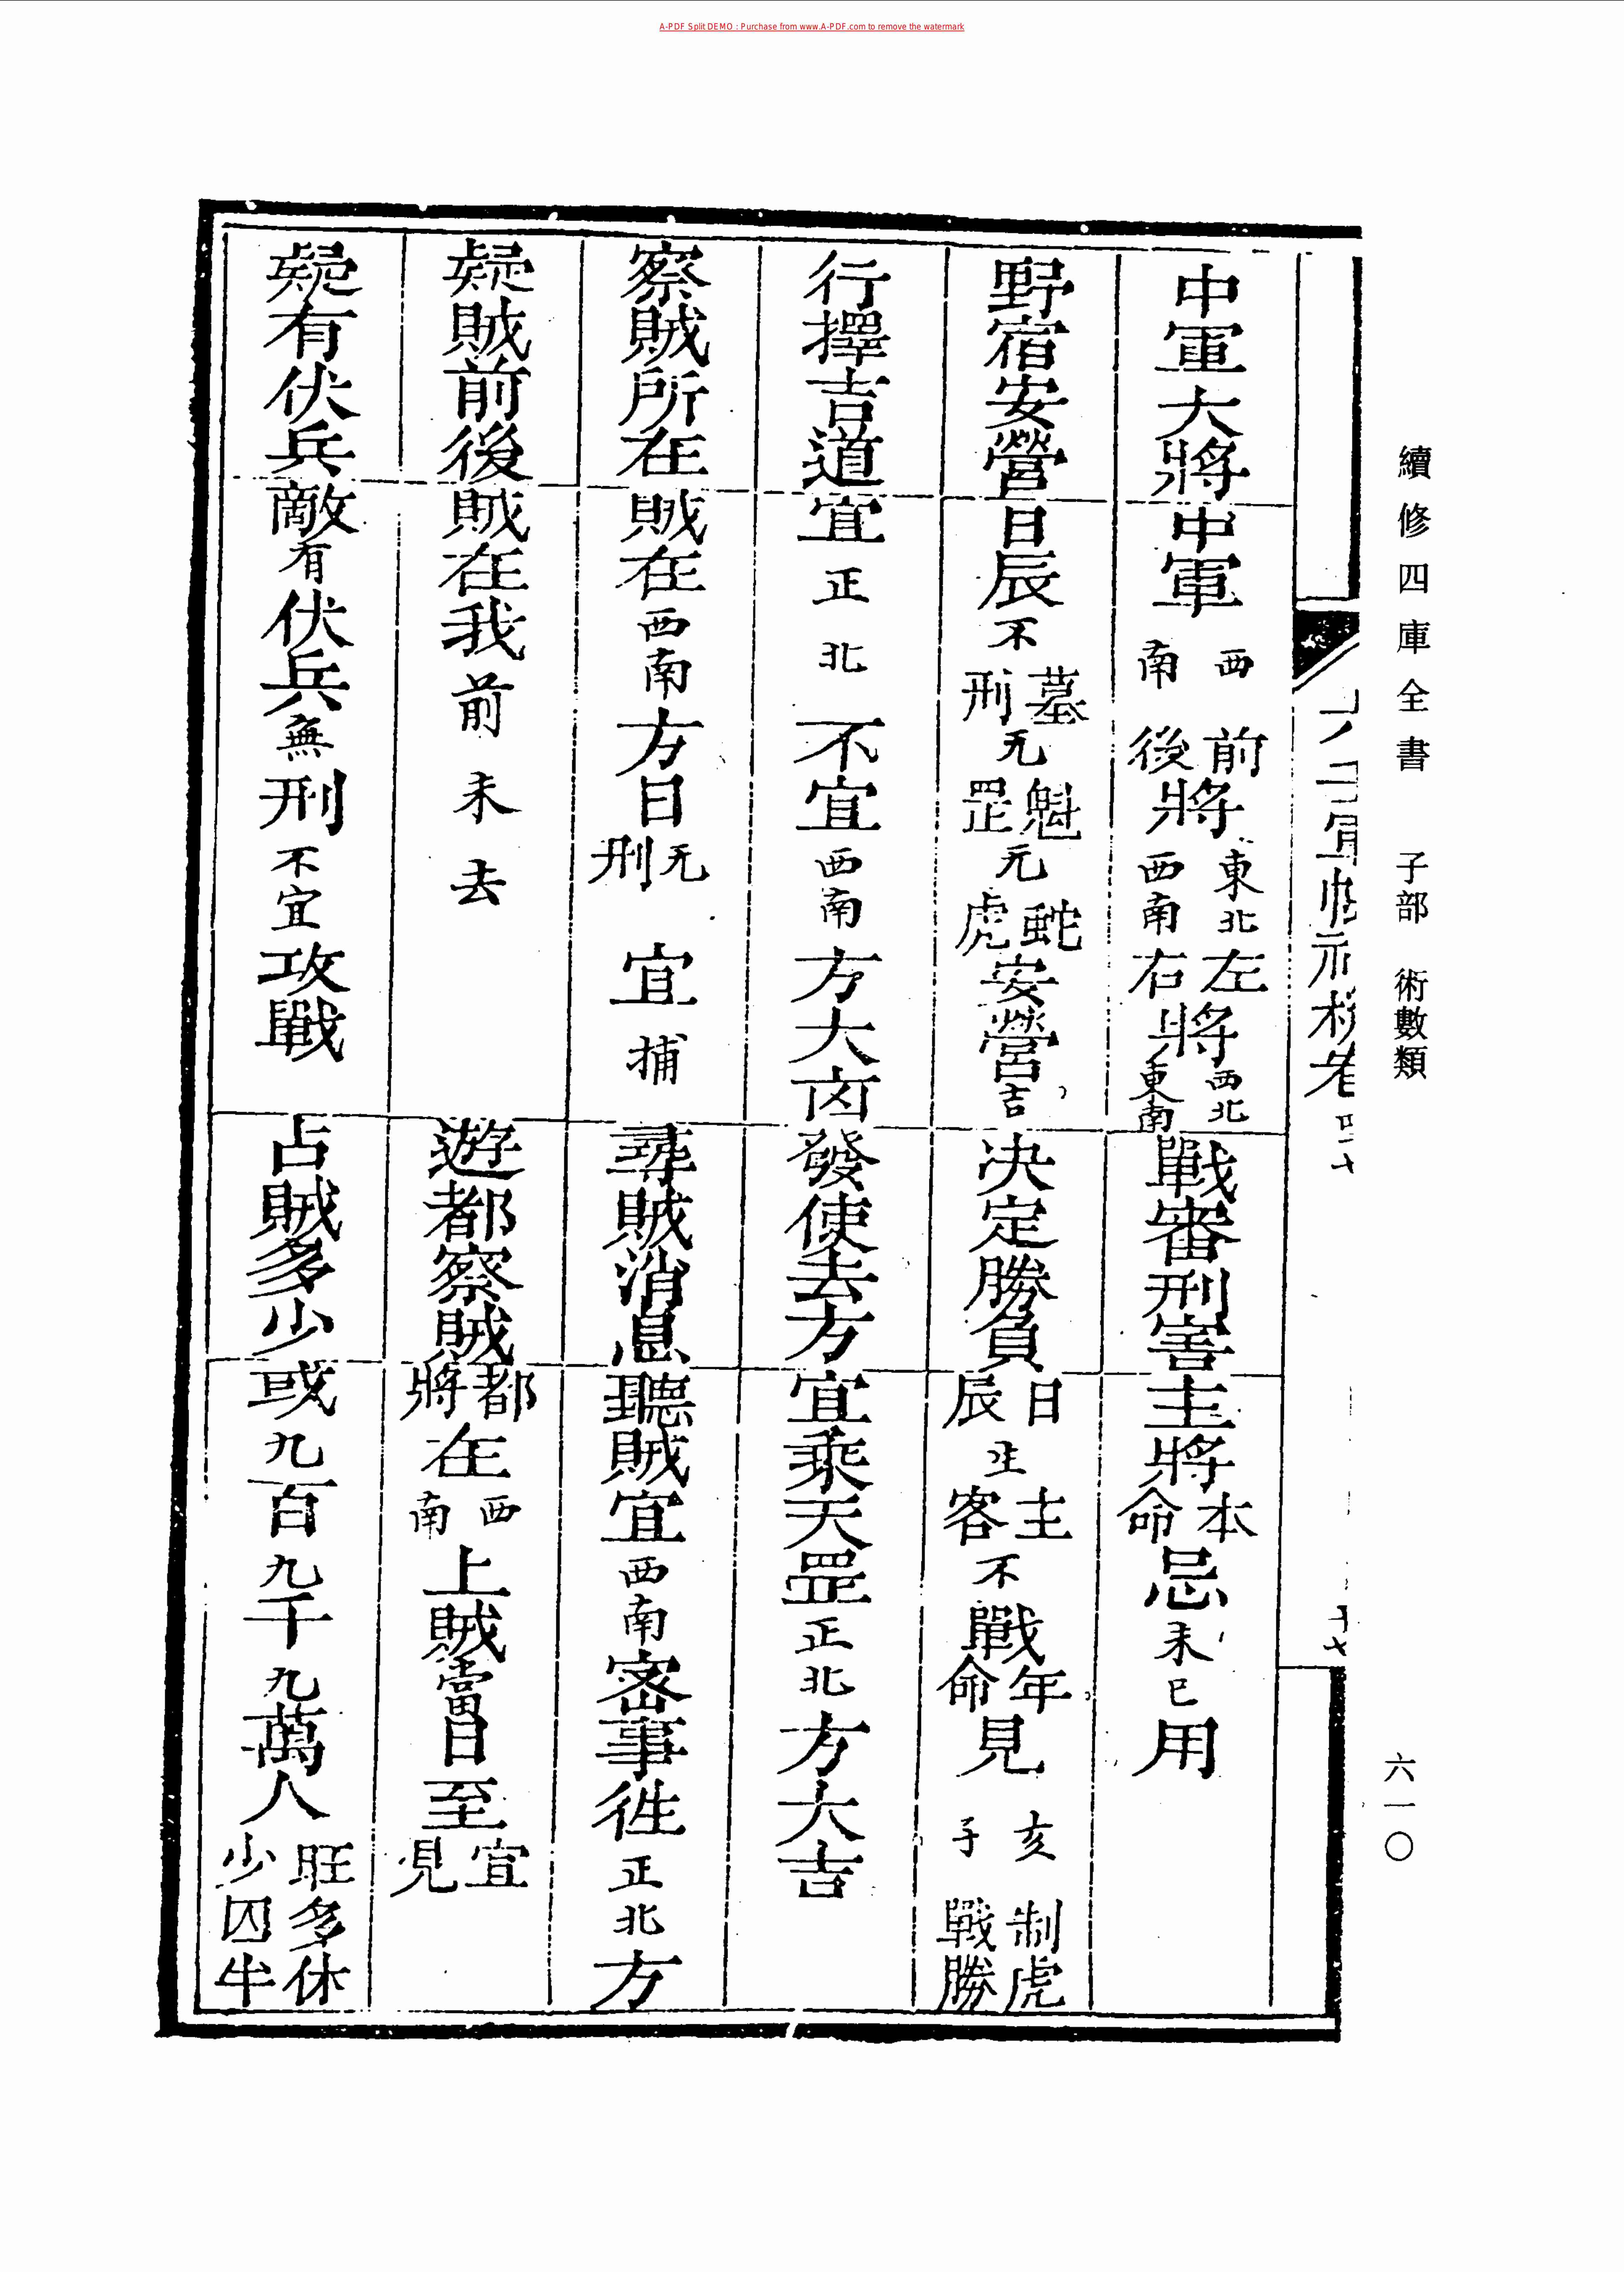 A-PDF Split DEMO : Purchase from www.A-PDF.com to remove the watermark
續修四庫全書 子部 術數類
六一〇
中軍大將 中軍 西南 前後將 東北西南 左右將 西北東南 戰審刑害 主將本命忌未巳用
野宿安營 日辰不墓刑无魁罡元蛇虎安營吉 决定勝負 日辰生主客不戰年命見亥子制虎戰勝
行擇吉道 宜正北 不宜西南方大凶 發使去方 宜乘天罡正北方大吉
察賊所在 賊在西南方日无刑 宜捕 尋賊消息 聽賊宜西南密事徃正北方
疑賊前後 賊在我前未去 遊都察賊 都將在西南上賊當日至宜見
疑有伏兵 敵有伏兵無刑不宜攻戰 占賊多少 或九百九千九萬人旺多休少囚半